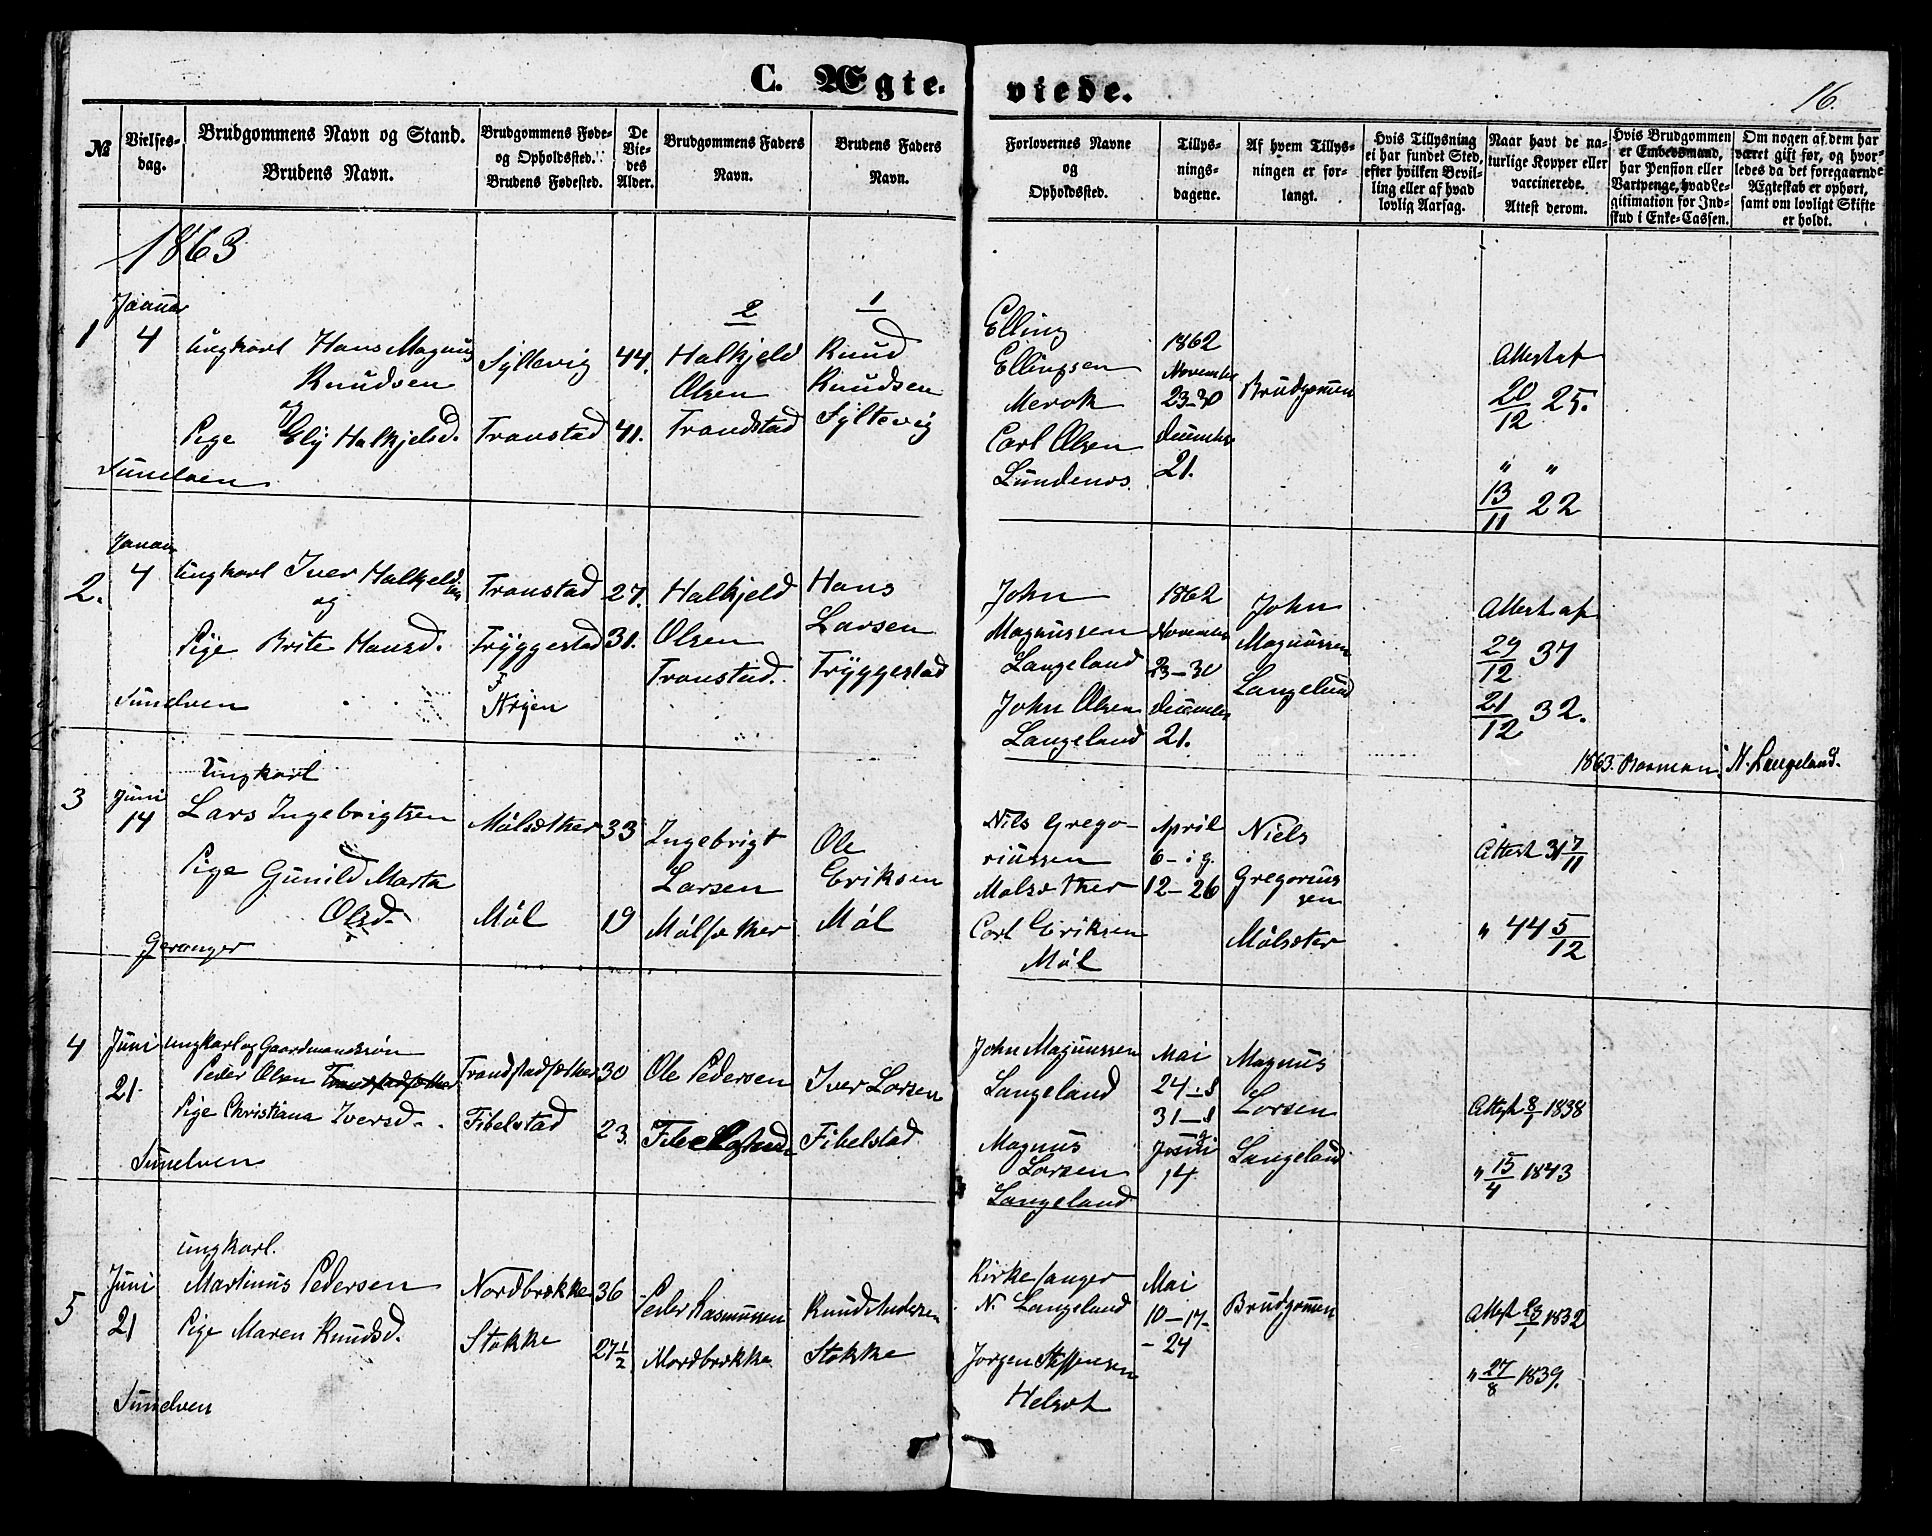 C. Ægte-
viede.
16.
№
Vielses-
dag.
Brudgommens Navn og Stand.
Brudens Navn.
Brudgommens Føde-
og Opholdssted.
Brudens Fødested.
De
Vie-
des
Alder.
Brudgommens Faders
Navn.
Brudens Faders
Navn.
Forlovernes Navne
og
Opholdssted.
Tillys-
nings-
dagene.
Af hvem Tillys-
ningen er for-
langt.
Hvis Tillysning
ei har fundet Sted,
efter hvilken Bevil-
ling eller af hvad
lovlig Aarsag.
Naar havt de na-
turlige Kopper eller
vaccinerede.
Attest derom.
Hvis Brudgommen
er Embedsmand,
har Pension eller
Vartpenge, hvad Le-
gitimation for Ind-
skud i Enke-Cassen.
Om nogen af dem har
været gift før, og hvor-
ledes da det foregaaende
Ægteskab er ophørt,
samt om lovligt Skifte
er holdt.
1863
1
Januar
4
ungkarl Hans Magnus
Knudsen
og
Pige Elij Halkjelsd.
Sunelven
Syltevig
Transtad
44.
41.
2
Halkjeld
Olsen
Trandstad
1
Knud
Knudsen
Syltevig
Elling
Ellingsen
Merok
Carl Olsen
Lundenes
1862
November
23-30
December
21.
Brudgomen
Attest af
20/12 25.
" "
13/11 22
2.
Januar
4
ungkarl Iver Halkjeldsen
og
Pige Brite Hansd.
Sunelven
Transtad
Tryggestad
27.
31.
Halkjeld
Olsen
Transtad.
Hans
Larsen
Tryggestad
John
Magnussen
Langeland
John Olsen
Langeland
1862
November
23-30
December
21.
John
Magnussen
Langeland
Attest af
29/12 37
21/12 32.
1863. N. Langeland.
3
Juni
14
Ungkarl
Lars Ingebrigtsen
Pige Gunild Marta
Olsd.
Geranger
Målsæther
Mål
33
19
Ingebrigt
Larsen
Målsæther
Ole
Eriksen
Mål
Nils Grego-
riussen
Målsæther
Carl Eriksen
Mål
April
6- i g.
12-26
Niels
Gregorius
sen
Målsæter
Attest 31 7/11
" 44 5/12
4
Juni
21
ungkarl og Gaardmandssøn
Peder Olsen Trandstadsæther
Pige Christiana Iversd.
Sunelven
Trandstadsæther
Fibelstad
30
23.
Ole Pedersen
Iver Larsen
Fibelstad
John Magnussen
Langeland
Magnus
Larsen
Langeland
Mai
24
31
Juni
14
Magnus
Larsen
Langeland
Attest 8/7 1838
" 15/4 1843
5
Juni
21
ungkarl.
Martinus Pedersen
Pige Maren Knudsd.
Sunelven
Nordbrække
Stokke
36
27 1/2
Peder Rasmussen
Nordbrække
Knud Andersen
Stokke
Kirkesanger
N. Langeland
Jørgen Steffensen
Helset
Mai
10-17-
-24
Brudgomen
Attest 23/1 1832
" 27/8 1839.